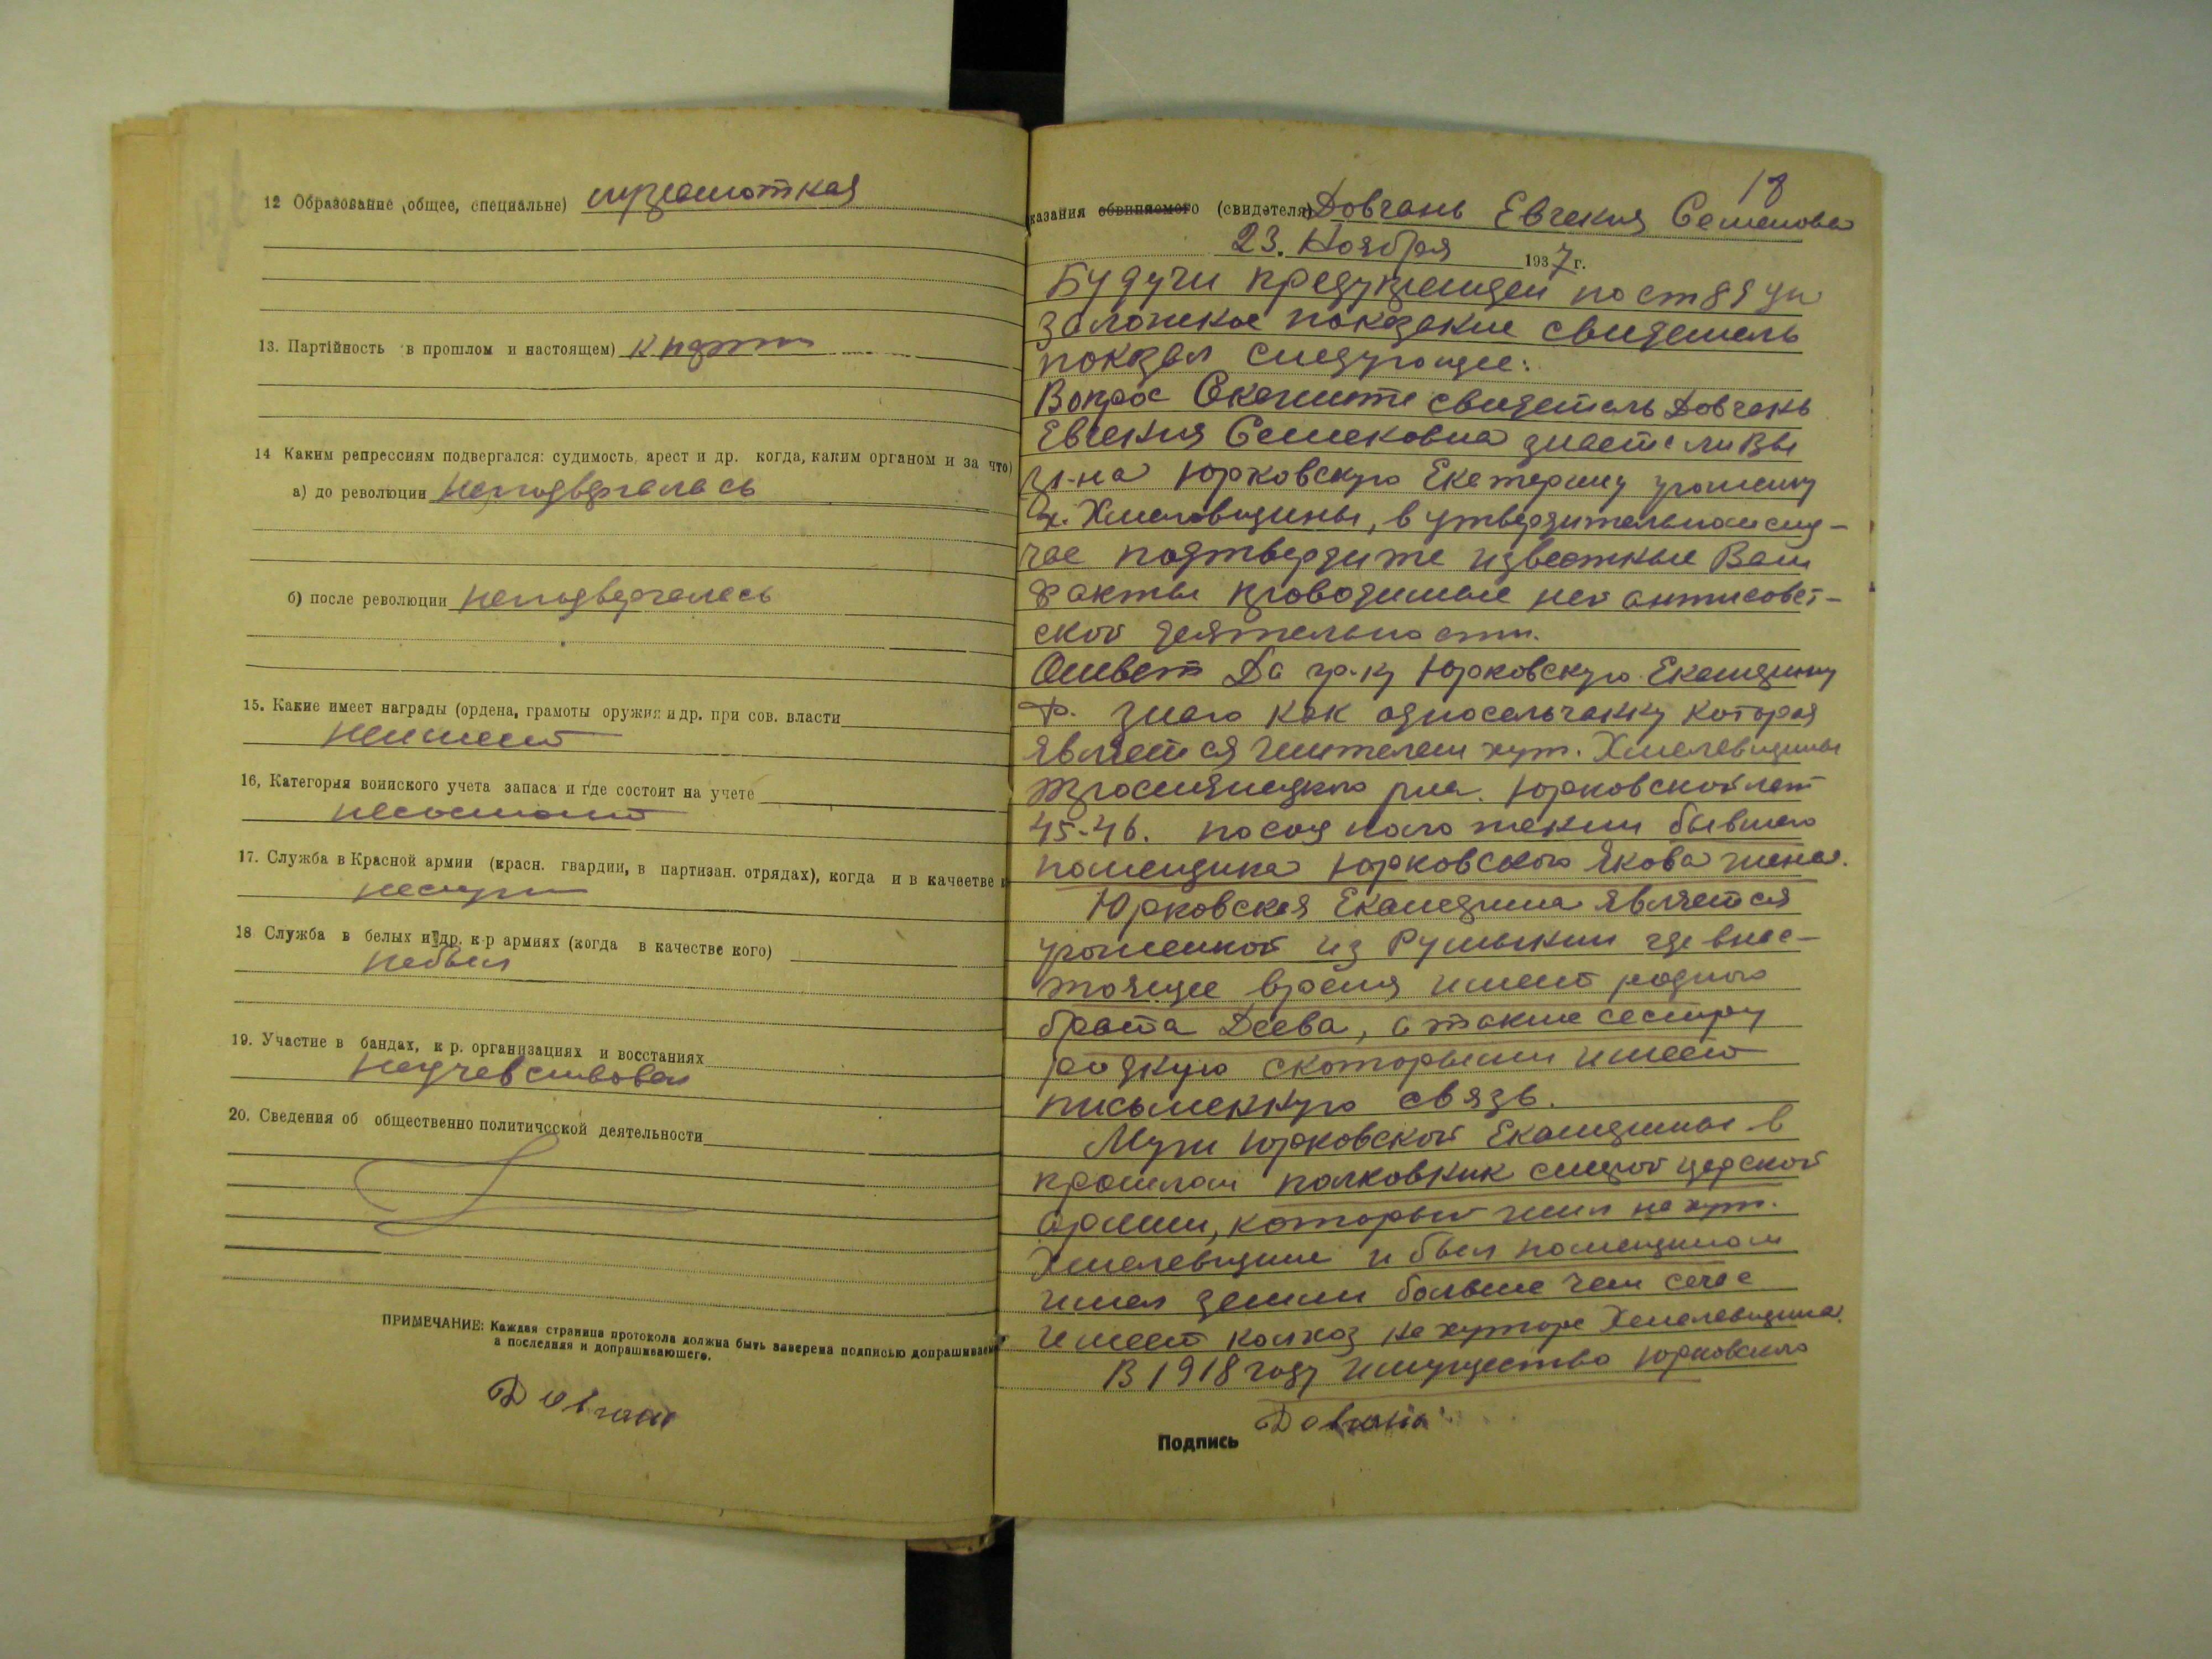 12 Образование (общее, специальне) м/грамотная
13. Партійность в прошлом и настоящем)
14 Каким репрессиям подвергался: судимость, арест и др. когда, каким органом и за что)
а) до революции неподвергалась
б) после революции неподвергалась
15. Какие имеет награды (ордена, грамоты оружия и др. при сов. власти
неимеет
16, Категория воинского учета запаса и где состоит на учете
несостоит
17. Служба в Красной армии (красн. гвардии, в партизан. отрядах), когда и в качестве к
18 Служба в белых и др. к-р армиях (когда в качестве кого)
небыл
19. Участие в бандах, к р. организациях и восстаниях
неучевствовал
20. Сведения об общественно политичсской деятельности
ПРИМЕЧАНИЕ: Каждая страница протокола должна быть заверена подписью допрашиваем
а последняя и допрашивающего.
Довгань
18
казания обвиняемого (свидетеля) Довгань Евгения Семеновна
23. Ноября 1937 г.
Будучи предупрежден по ст 89 уп
заложное показание свидетель
показал следующее:
Вопрос Скажите свидетель Довгань
Евгения Семеновна знаете ли Вы
гр-на Юрковскую Екатерину урожену
х. Хмеловщины, в утвердительном слу-
чае подтвердите известные Вам
факты проводимые ней антисовет-
ской деятельности.
Ответ Да гр-ку Юрковскую Екатерину
Ф. знаю как односельчанку которая
является жителем хут. Хмелевщины
Тростянецкого р-на. Юрковской лет
45-46. по соц положении бывшего
помещика Юрковского Якова жена.
Юрковская Екатерина является
уроженкой из Румынии где внас-
тоящее время имеет родного
брата Деева, а также сестру
родную скоторыми имеет
письменную связь.
Муж Юрковской Екатерины в
прошлом полковник служил царской
армии, который жил на хут.
Хмелевщине и был помещиком
имел земли больше чем сечас
имеет колхоз на хуторе Хмелевщина.
В 1918 году имущество Юрковского
Подпись Довгань